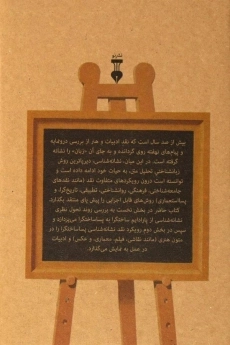 نشر نو
بیش از صد سال است که نقد ادبیات و هنر از بررسی درونمایه
و پیام‌های نهفته روی گردانده و به جای آن «زبان» را نشانه
گرفته است. در این میان، نشانه‌شناسی، دیرپاترین روش
زبانشناختی تحلیل متن، به حیات خود ادامه داده است و
توانسته است درون رویکردهای متفاوت نقد (مانند نقدهای
جامعه‌شناختی، فرهنگی، روانشناختی، تطبیقی، تاریخ‌گرا، و
پسااستعماری) روش‌های قابل اجرایی را پیش پای منتقد بگذارد.
کتاب حاضر در بخش نخست به بررسی روند تحول نظری
نشانه‌شناسی از پارادایم ساختگرا به پساساختگرا می‌پردازد و
سپس در بخش دوم رویکرد نقد نشانه‌شناسی پساساختگرا را در
متون هنری (مانند نقاشی، فیلم، معماری، و عکس) و ادبیات
در عمل به نمایش می‌گذارد.